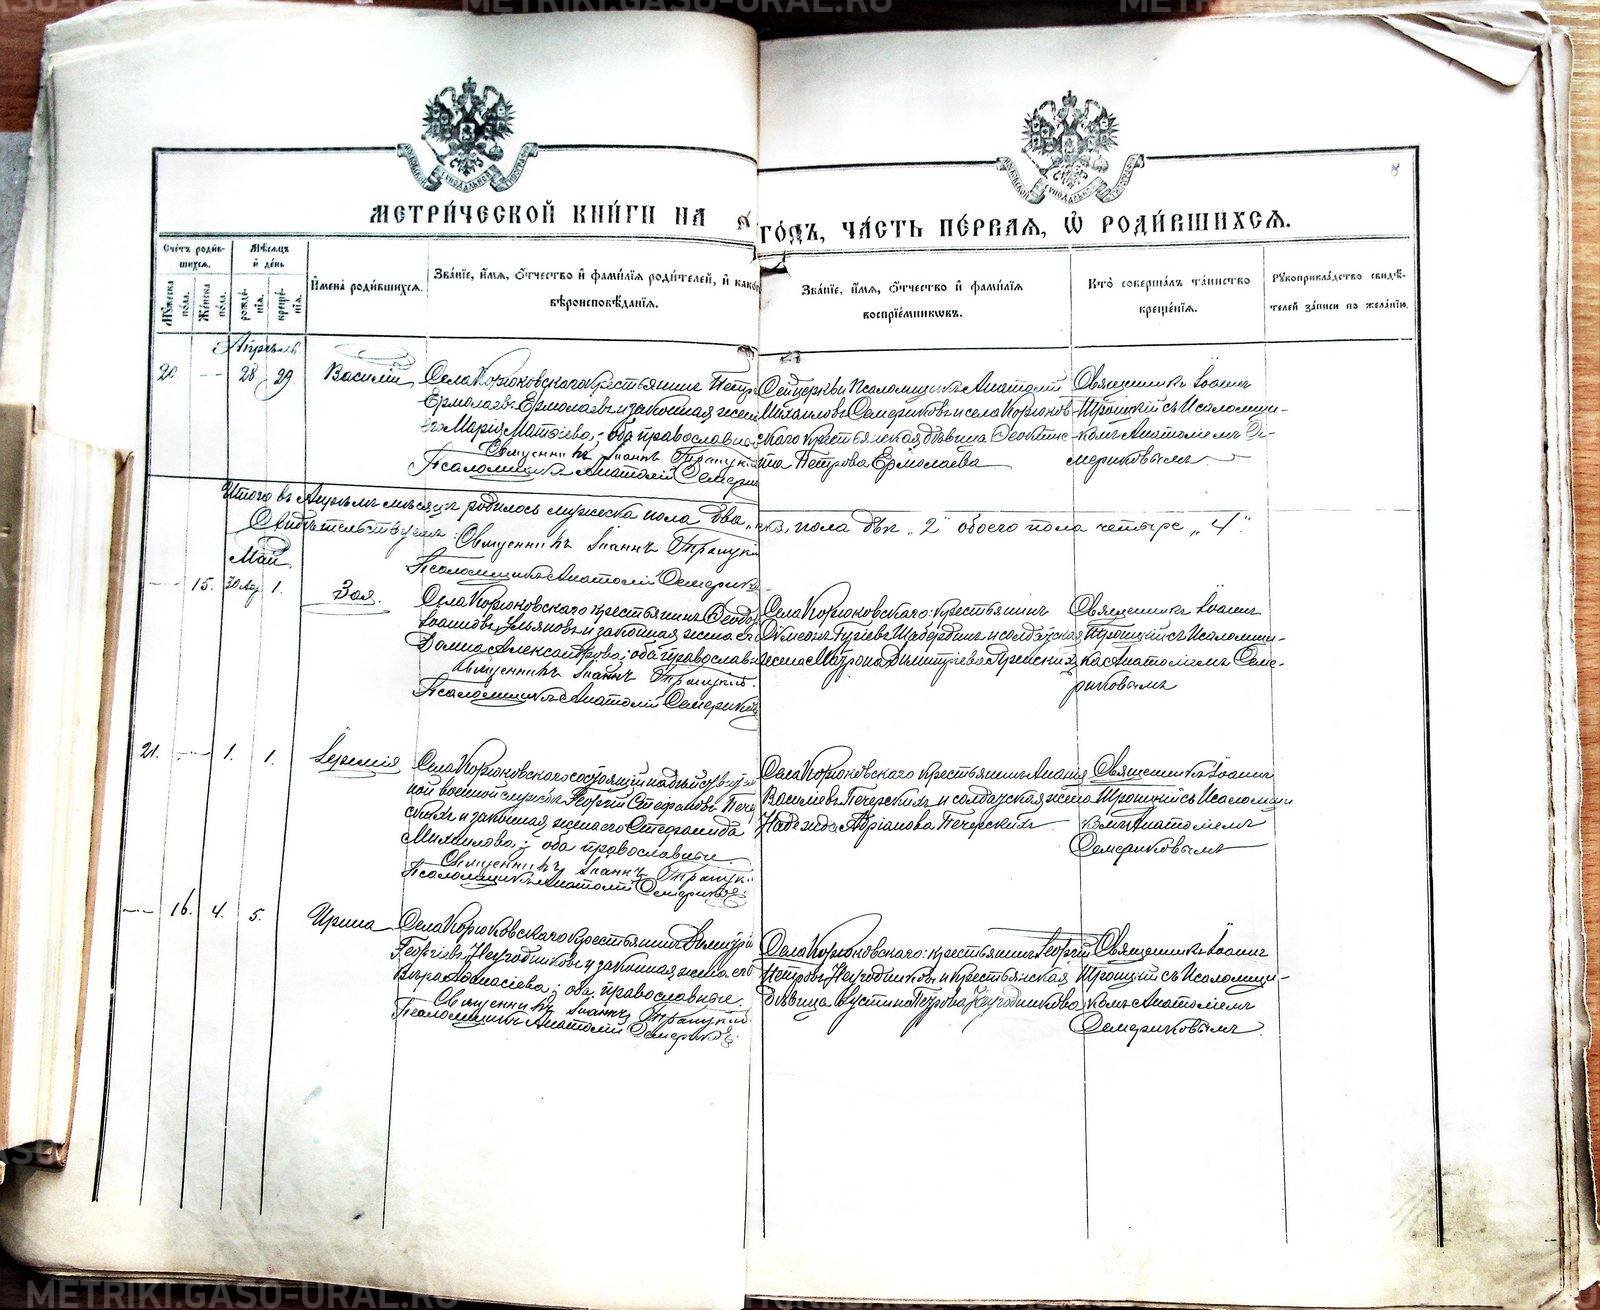 METRIKI.GASU-URAL.RU
МЕТРИ́ЧЕСКОЙ КНИ́ГИ НА
ГО́ДЪ, ЧА́СТЬ ПЕ́РВАЯ, Ѡ РОДИ́ВШИХСЯ.
Сче́тъ роди́в-
шихся.
Му́жеска
по́ла.
Же́нска
по́ла.
Мѣ́сяцъ
и де́нь
рожде́-
нїя.
креще́-
нїя.
Имена̀ роди́вшихся.
Зва́нїе, и́мя, о́тчество и фами́лїя роди́телей, и како́
вѣроисповѣ́данїя.
Зва́нїе, и́мя, о́тчество и фами́лїя
воспрїе́мниковъ.
Кто̀ соверша́лъ та́инство
креще́нїя.
Рукоприкла́дство свидѣ́-
телей за́писи по жела́нїю.
Апрѣль
20 28 29 Василій
Села Корюковского крестьянинъ Петръ
Ермолаевъ Ермолаевъ и законная жена
его Марія Матѳіева; оба православные
Священникъ Іоаннъ Троицкій
Псаломщикъ Анатолій Семерик
Псаломщикъ Анатолій
Михаиловъ Семериковъ и села Корюков-
скаго крестьянская дѣвица Ѳеоктис-
та Петрова Ермолаева
Священникъ Іоаннъ
Троицкій съ Псаломщи-
комъ Анатоліемъ Се-
мериковымъ
Итого въ Апрѣлѣ мѣсяцѣ родилось мужеска пола два,
пола двѣ „2" обоего пола четыре „4".
Свидѣтельствуемъ: Священникъ Іоаннъ Троицкій
Псаломщикъ Анатолій Семериковъ
Май
15. 30 Апр 1. Зоя.
Села Корюковского крестьянинъ Ѳеодоръ
Іоанновъ Ульяновъ и законная жена его
Домна Александрова; оба православные
Священникъ Іоаннъ Троицкій.
Псаломщикъ Анатолій Семериковъ
Села Корюковскаго: крестьянинъ
и солдатская
жена Матрона Димитріева
Священникъ Іоаннъ
Троицкій съ Псаломщи-
комъ Анатоліемъ Семе-
риковымъ
21. 1. 1. Іеремія
Села Корюковского состоящій на дѣйствитель-
ной военной службѣ Георгій Стефановъ Печер-
скихъ и законная жена его Стефанида
Михаилова; оба православные.
Священникъ Іоаннъ Троицкій
Псаломщикъ Анатолій Семериковъ
Села Корюковскаго крестьянинъ Ананія
Василіевъ Печерскихъ и солдатская жена
Надежда Адріанова Печерскихъ
Священникъ Іоаннъ
Троицкій съ Псаломщи
комъ Анатоліемъ
Семериковымъ
16. 4. 5. Ирина
Села Корюковскаго крестьянинъ Димитрій
Георгіевъ Неугодниковъ и законная жена его
Вѣра Аѳанасіева; оба православные.
Священникъ Іоаннъ Троицкій
Псаломщикъ Анатолій Семериковъ
Села Корюковскаго: крестьянинъ Георгій
Петровъ Неугодниковъ и крестьянская
дѣвица Іустина Петрова Неугодникова
Священникъ Іоаннъ
Троицкій съ Псаломщи-
комъ Анатоліемъ
Семериковымъ.
METRIKI.GASO-URAL.RU